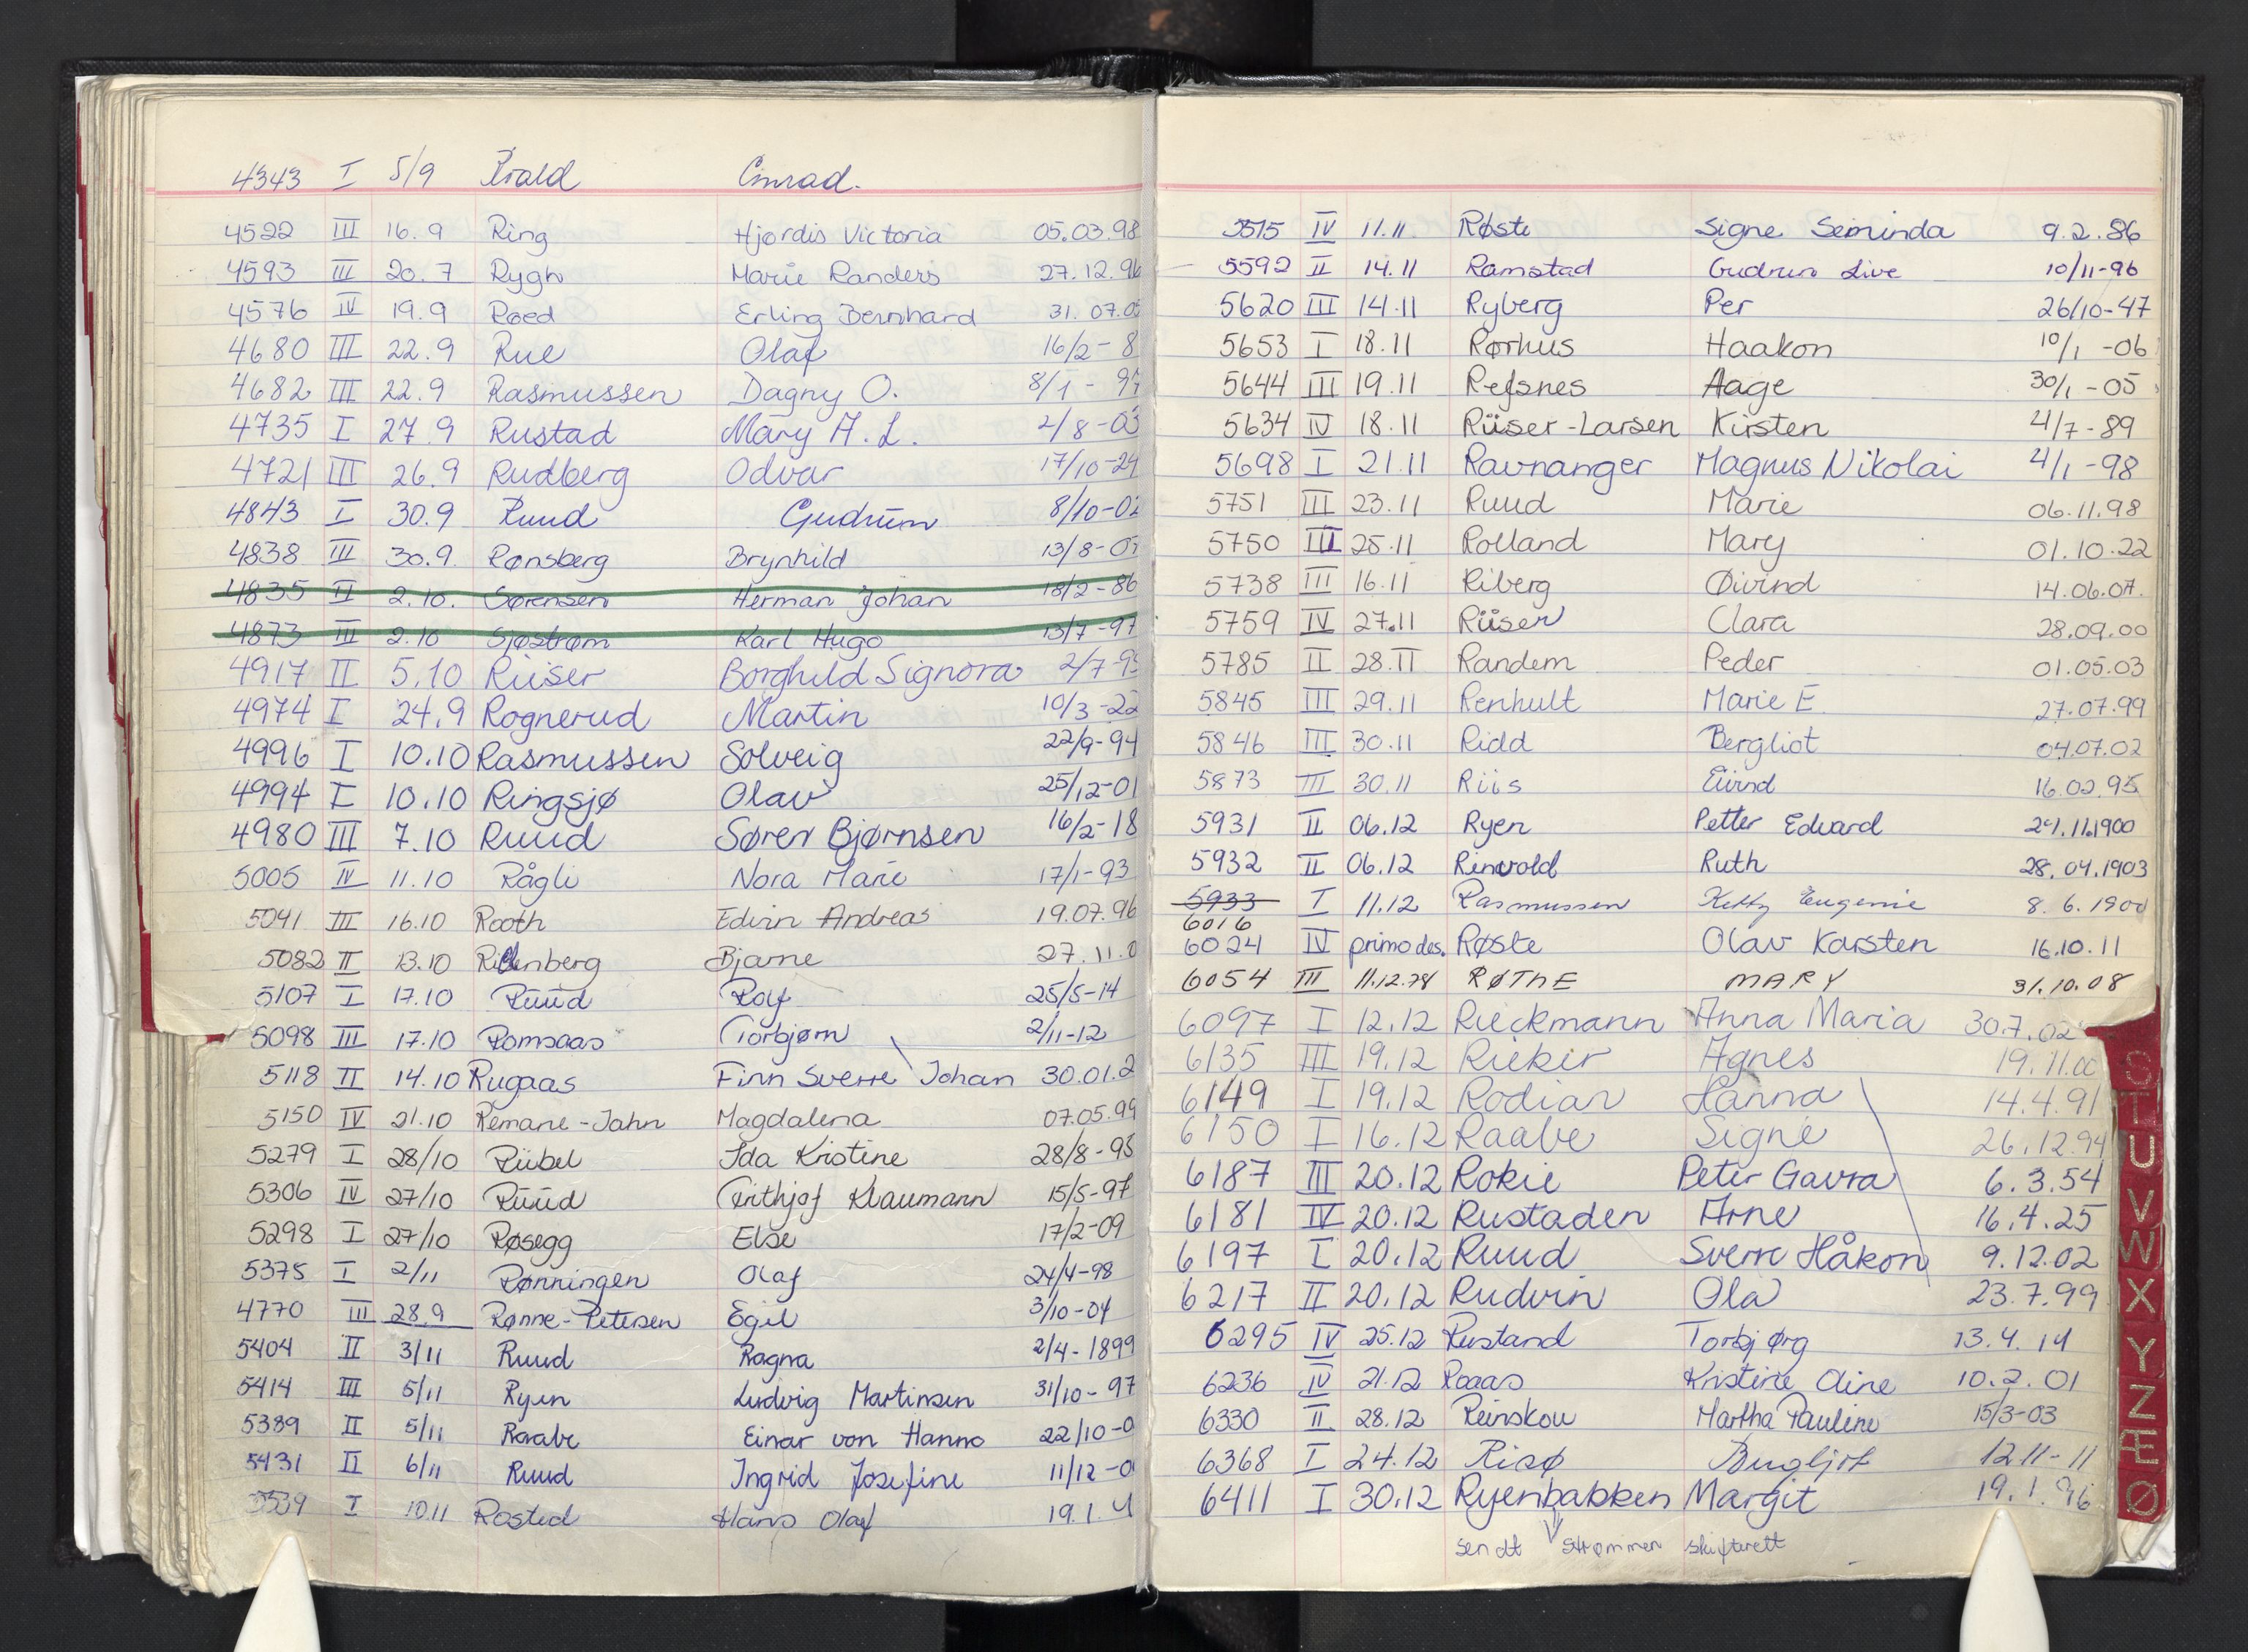 4343 I 5/9 Conrad.
4522 III 16.9 Ring Hjørdis Victoria 05.03.98
4593 III 20.7 Rygh Marie Randers 27.12.96
4576 IV 19.9 Røed Erling Bernhard 31.07.0
4680 III 22.9 Rue Olaf 16/2-8
4682 III 22.9 Rasmussen Dagny O. 8/1-97
4735 I 27.9 Rustad Mary A. L. 2/8-03
4721 III 26.9 Rudberg Odvar 17/10-24
4843 I 30.9 Ruud Gudrun 8/10-02
4838 III 30.9 Rønsberg Brynhild 13/8-07
4835 II 2.10. Sørensen Herman Johan 18/2-86
4873 III 2.10 Sjøstrøm Karl Hugo 13/7-97
4917 II 5.10 Riiser Borghild Signora 2/7-95
4974 I 24.9 Rognerud Martin 10/3-22
4996 I 10.10 Rasmussen Solveig 22/9-94
4994 I 10.10 Ringsjø Olav 25/12-01
4980 III 7.10 Ruud Søren Bjørnsen 16/2-18
5005 IV 11.10 Rågli Nora Marie 17/1-93
5041 III 16.10 Rooth Edvin Andreas 19.07.96
5082 II 13.10 Bjarne 27.11.0
5107 I 17.10 Ruud Rolf 25/5-14
5098 III 17.10 Romsaas Torbjørn 2/11-12
5118 II 14.10 Rugaas Finn Sverre Johan 30.01.2
5150 IV 21.10 Remane-Jahn Magdalena 07.05.99
5279 I 28/10 Rübel Ida Kristine 28/8-95
5306 IV 27/10 Ruud Frithjof Klaumann 15/5-97
5298 I 27/10 Røsegg Else 17/2-09
5375 I 2/11 Rønningen Olaf 24/4-98
4770 III 28.9 Rønne-Petersen Egil 3/10-04
5404 II 3/11 Ruud Ragna 2/4-1899
5414 III 5/11 Ryen Ludvig Martinsen 31/10-97
5389 II 5/11 Raabe Einar von Hanno 22/10-0
5431 II 6/11 Ruud Ingrid Josefine 11/12-0
5539 I 10.11 Rosted Hans Olaf 19.1.
5575 IV 11.11 Røste Signe Seminda 9.2.86
5592 II 14.11 Ramstad Gudrun Live 10/11-96
5620 III 14.11 Ryberg Per 26/10-47
5653 I 18.11 Rørhus Haakon 10/1-06
5644 III 19.11 Refsnes Aage 30/1-05
5634 IV 18.11 Riiser-Larsen Kirsten 4/7-89
5698 I 21.11 Ravnanger Magnus Nikolai 4/1-98
5751 III 23.11 Ruud Marie 06.11.98
5750 III 25.11 Rolland Mary 01.10.22
5738 III 16.11 Riberg Øivind 14.06.07.
5759 IV 27.11 Riiser Clara 28.09.00
5785 II 28.11 Randem Peder 01.05.03
5845 III 29.11 Renhult Marie E 27.07.99
5846 III 30.11 Ridd Bergliot 04.07.02
5873 III 30.11 Riis Eivind 16.02.95
5931 II 06.12 Ryen Petter Edvard 24.11.1900
5932 II 06.12 Rinvold Ruth 28.04.1903
5933 I 11.12 Rasmussen Ketty Eugenie 8.6.1900
6016
6024 IV primo des. Røste Olav Karsten 16.10.11
6054 III 11.12.78 RØThE MARY 31.10.08
6097 I 12.12 Rieckmann Anna Maria 30.7.02
6135 III 19.12 Rieber Agnes 19.11.00
6149 I 19.12 Rodian Hanna 14.4.91
6150 I 16.12 Raabe Signe 26.12.94
6187 III 20.12 Rokie Peter Gavra 6.3.54
6181 IV 20.12 Rustaden Arne 16.4.25
6197 I 20.12 Ruud Sverre Håkon 9.12.02
6217 II 20.12 Rudvin Ola 23.7.99
6295 IV 25.12 Rustand Torbjørg 13.4.14
6236 IV 21.12 Roaas Kristine Oline 10.2.01
6330 II 28.12 Reinskou Martha Pauline 15/3-03
6368 I 24.12 Risø Bergljot 12.11-11
6411 I 30.12 Ryenbakken Margit 19.1.96
sendt Strømmen skifterett
S
T
U
V
W
X
Y
Z
Æ
Ø